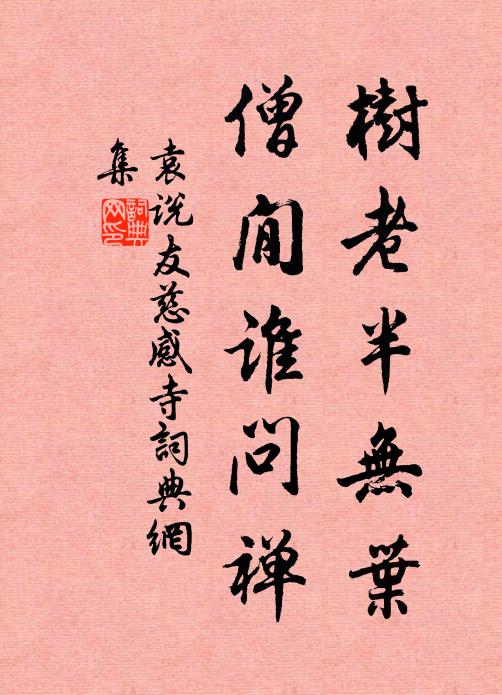 樹老半無葉
僧閒誰問禅
袁说友慈感寺詞典網
集
詞典
网印